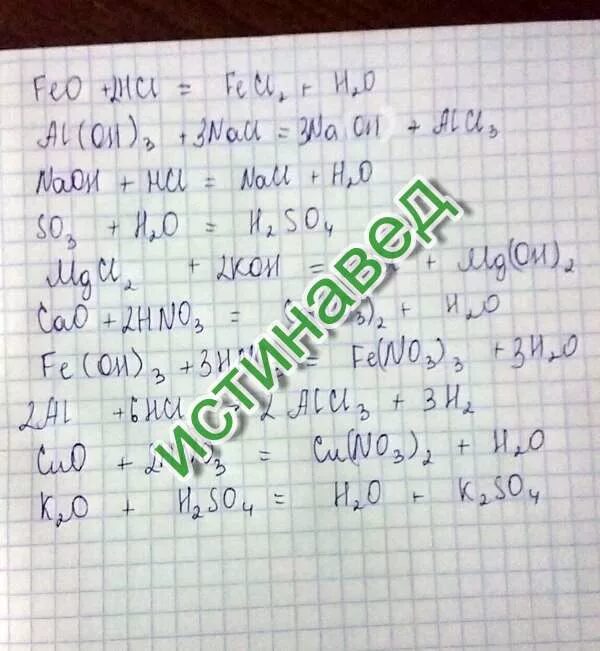 FeO + 2HCl = FeCl₂ + H₂O
Al(OH)₃ + 3NaCl = 3NaOH + AlCl₃
NaOH + HCl = NaCl + H₂O
SO₃ + H₂O = H₂SO₄
MgCl₂ + 2KOH = + Mg(OH)₂
CaO + 2HNO₃ = )₂ + H₂O
Fe(OH)₃ + = Fe(NO₃)₃ + 3H₂O
2Al + 6HCl 2AlCl₃ + 3H₂
CuO + = Cu(NO₃)₂ + H₂O
K₂O + H₂SO₄ = H₂O + K₂SO₄
истинавед